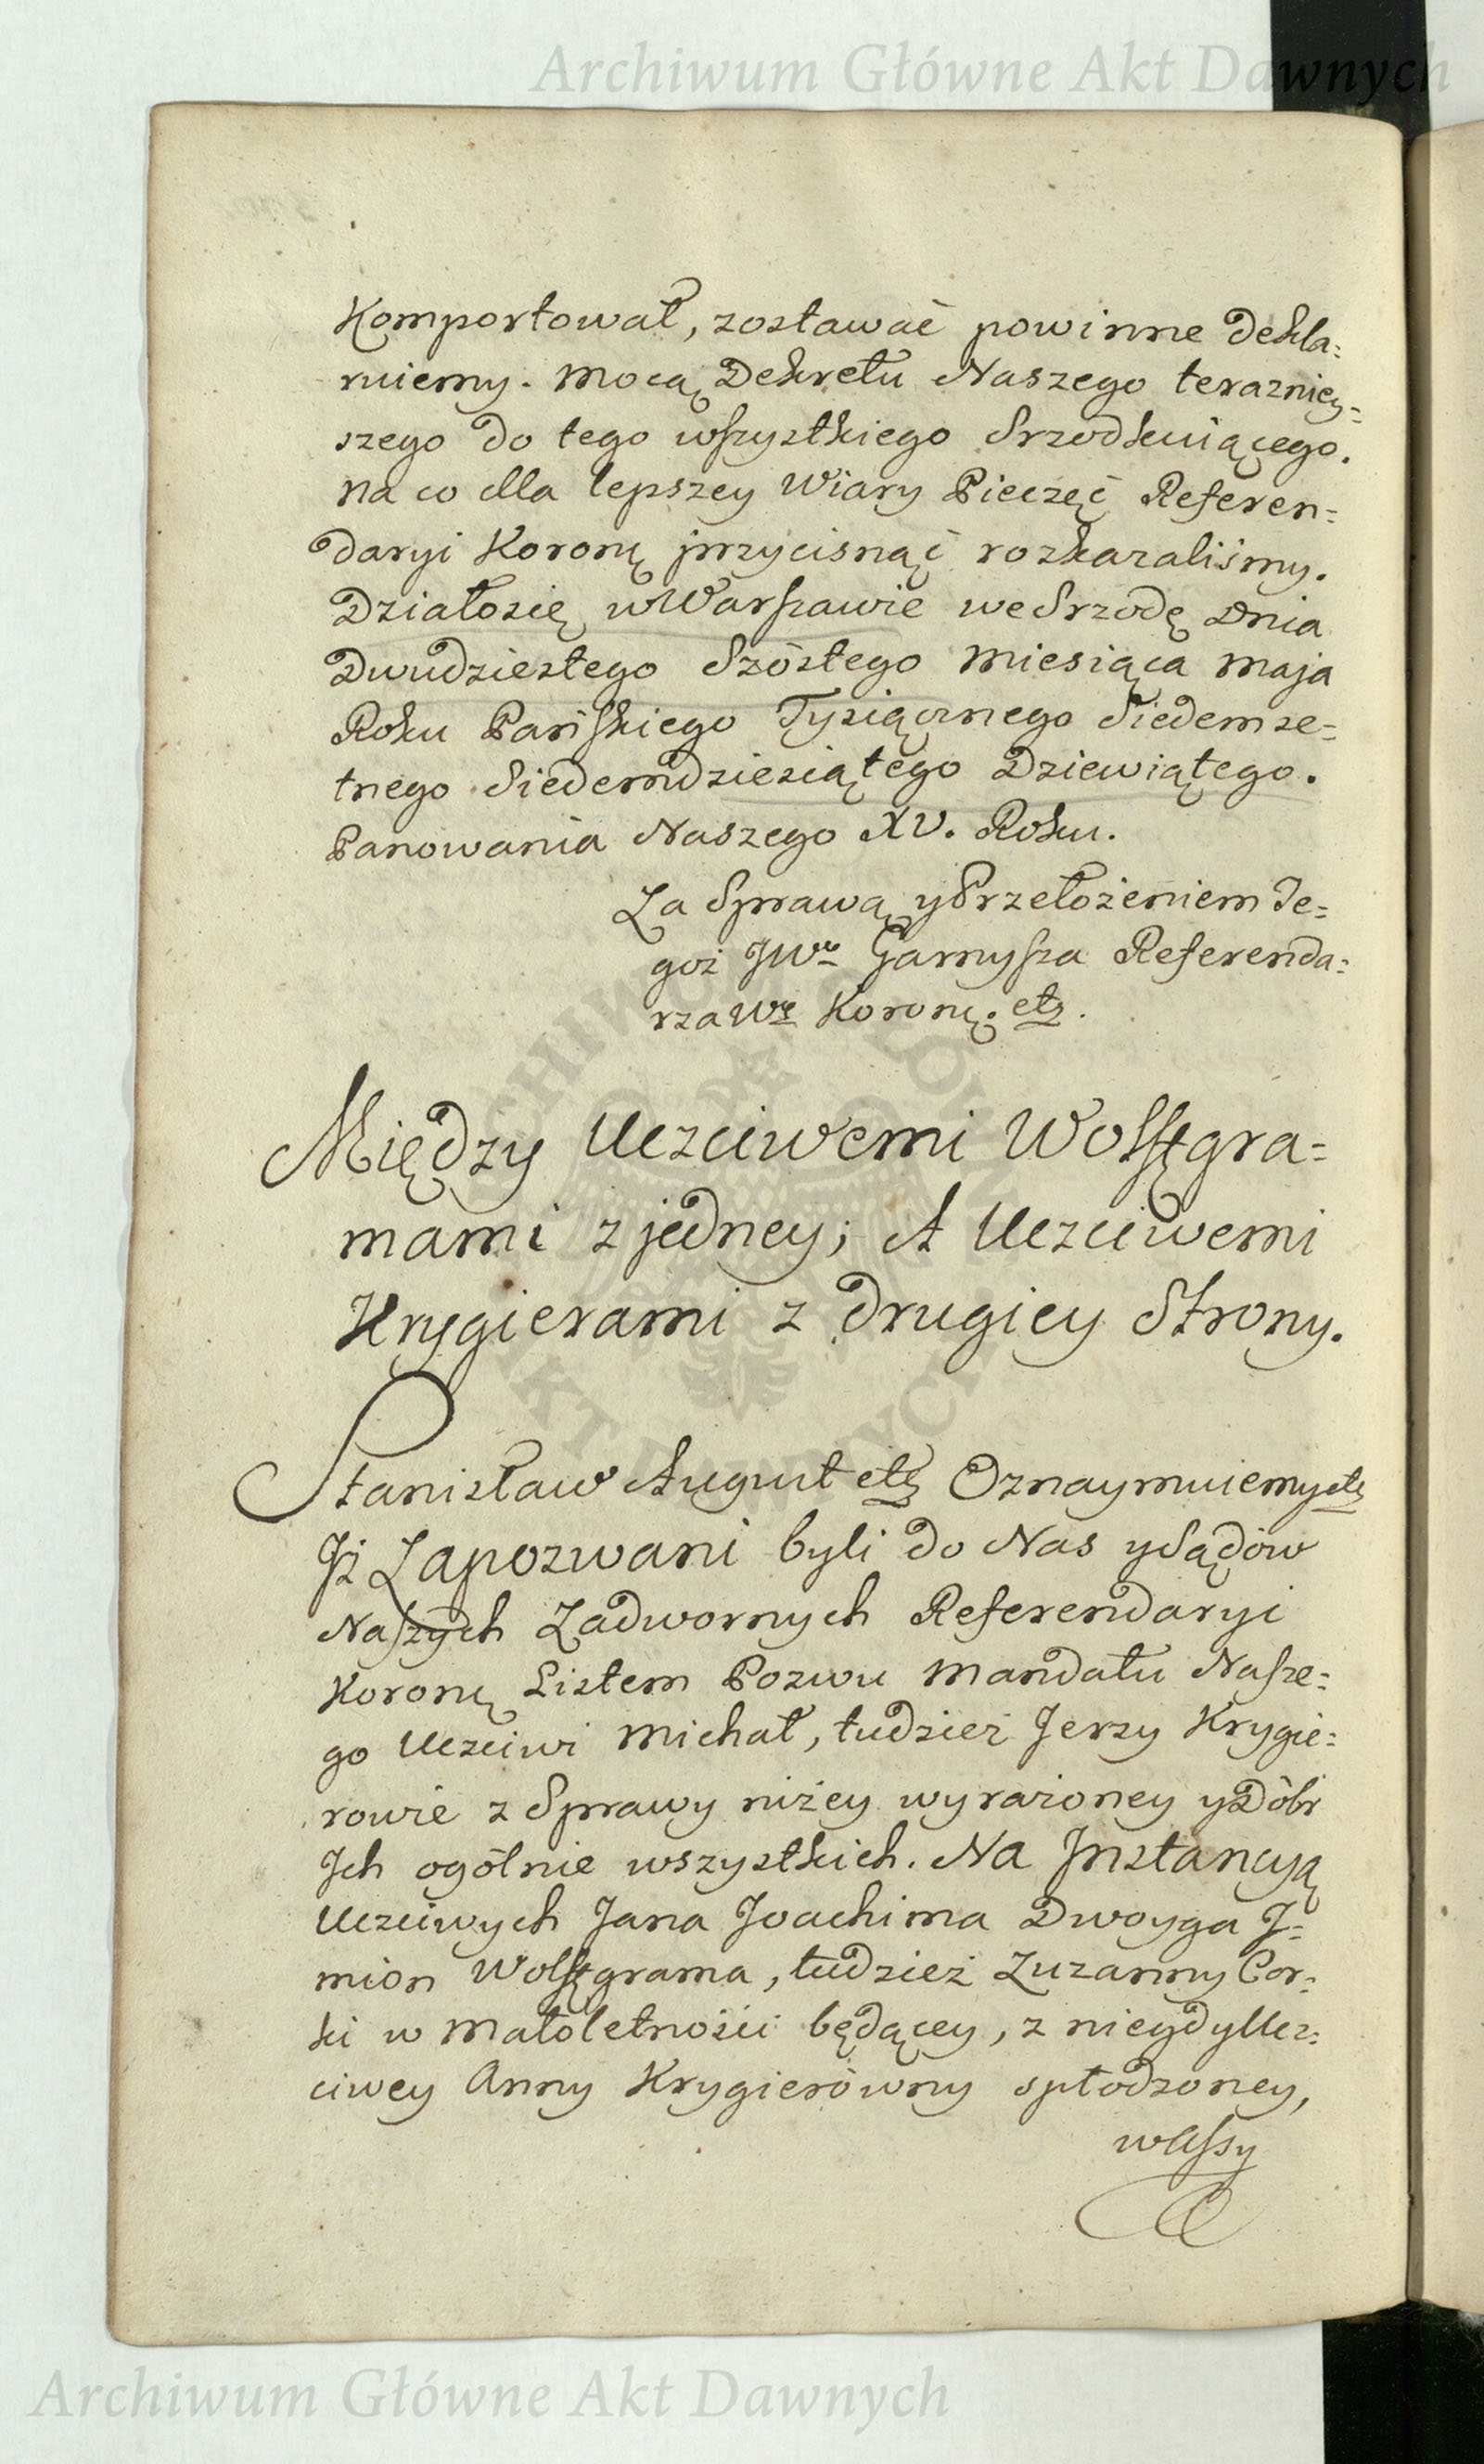 Archiwum Główne Akt Dawnych
Komportował, zostawać powinne Dekla=
ruiemy. Mocą Dekretu Naszego teraźniey=
szego do tego wszystkiego Srzodkuiącego.
Na co dla lepszey Wiary Pieczęć Referen=
daryi Koronę przycisnąć rozkazaliśmy.
Działosię w Warszawie we Srzodę Dnia
Dwudziestego Szóstego Miesiąca Maja
Roku Pańskiego Tysiącznego Siedemse=
tnego Siedemdziesiątego Dziewiątego.
Panowania Naszego XV. Roku.
Za Sprawą y Przełożeniem Te=
goż JWo Garnysza Referenda=
rza We Koronę. etc.
Między Uczciwemi Wolffgra=
mami z jedney; A Uczciwemi
Krygierami z drugiey Strony.
Stanisław August etc Oznaymuiemy etc
Iż Zapozwani byli do Nas y Sądów
Naszych Zadwornych Referendaryi
Koronę Listem Pozwu Mandatu Nasze=
go Uczciwi Michał, tudzież Jerzy Krygie=
rowie z Sprawy niżey wyrażoney y Dóbr
Ich ogólnie wszystkich. Na Instancyą
Uczciwych Jana Joachima Dwoyga I=
mion Wolffgrama, tudzież Zuzanny Cor=
ki w Małoletności będącey, z niegdy Ucz=
ciwey Anny Krygierówny spłodzoney,
w Assy
Archiwum Główne Akt Dawnych